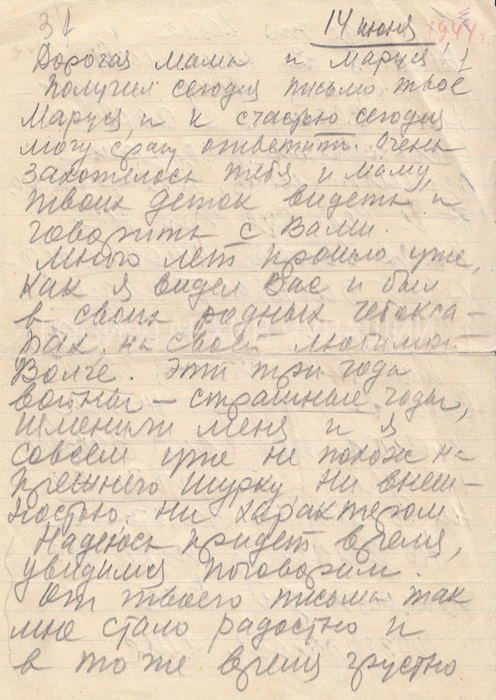 31
14 июня 1944 г.
Дорогая мама и Маруся!
Получил сегодня письмо твое
Маруся, и к счастью сегодня
могу сразу ответить. Очень
захотелось тебя и маму,
твоих деток видеть и
говорить с Вами.
Много лет прошло уже,
как я видел Вас и был
в своих родных Чебокса-
рах, на своей любимой
Волге. Эти три года
войны – страшные годы,
изменили меня и я
совсем уже не похож на
прежнего Шурку, ни внеш-
ностью, ни характером
Надеюсь придет время,
увидимся поговорим.
От твоего письма так
мне стало радостно и
в то же время грустно